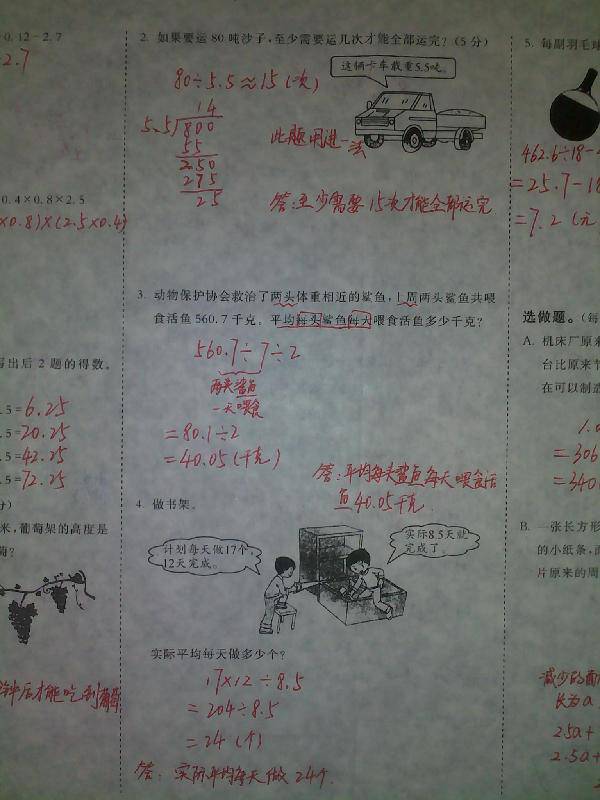 0.12-2.7
2.7
0.4×0.8×2.5
×0.8)×(2.5×0.4)
写出后 2 题的得数。
.5=6.25
.5=20.25
.5=42.25
.5=72.25
分)
米,葡萄架的高度是
葡?
钟后才能吃到葡萄
2. 如果要运 80 吨沙子,至少需要运几次才能全部运完?(5 分)
这辆卡车载重5.5吨。
80÷5.5≈15(次)
14
5.5 800
55
250
275
25
此题用进一法
答:至少需要15次才能全部运完
3. 动物保护协会救治了两头体重相近的鲨鱼,1周两头鲨鱼共喂
食活鱼 560.7 千克。平均每头鲨鱼每天喂食活鱼多少千克?
560.7÷7÷2
两头鲨鱼
一天喂食
=80.1÷2
=40.05(千克)
答:平均每头鲨鱼每天喂食活
鱼40.05千克.
4. 做书架。
计划每天做17个,
12天完成。
实际8.5天就
完成了。
实际平均每天做多少个?
17×12÷8.5
=204÷8.5
=24(个)
答:实际平均每天做24个.
5. 每副羽毛球
462.6÷18-
=25.7-18
=7.2(元
选做题。(每
A. 机床厂原来
台比原来节
在可以制造
1.0
=306
=340
B. 一张长方形
的小纸条,
片原来的周
减少的面
长为a
2.5a+
2.5a+